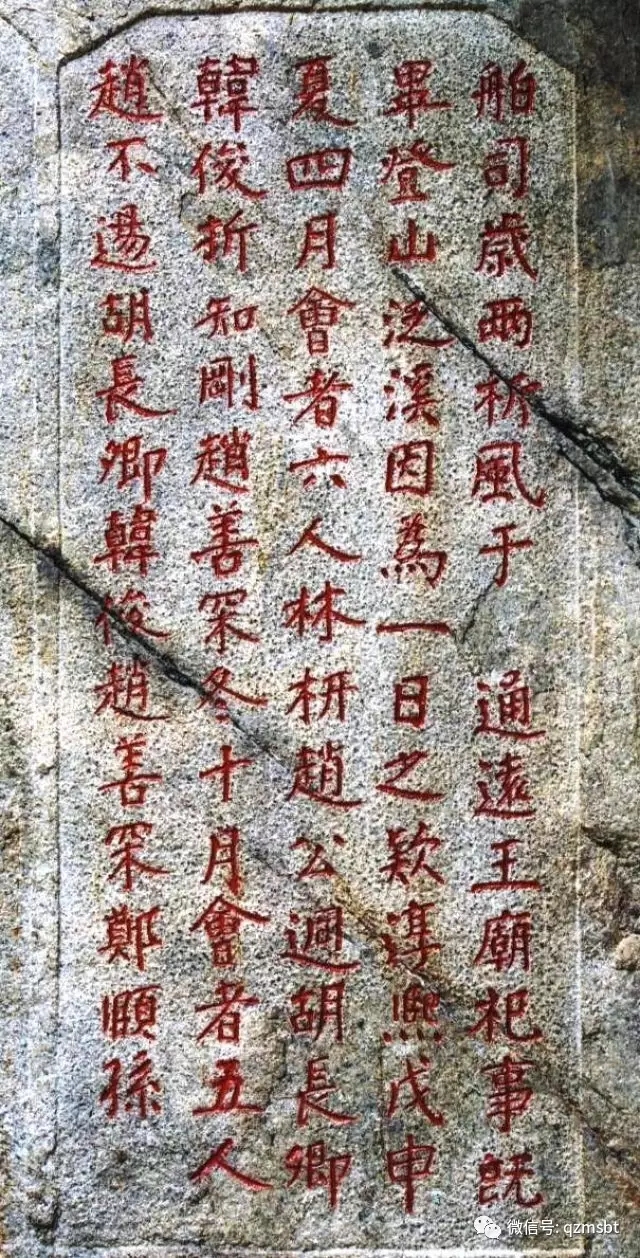 舶司歲兩祈風于 通遠王廟祀事既
畢登山泛溪因爲一日之欵淳熙戊申
夏四月會者六人林枅趙公迥胡長卿
韓俊折知剛趙善罙冬十月會者五人
趙不逷胡長卿韓俊趙善罙鄭頤孫
微信号: qzmsbt